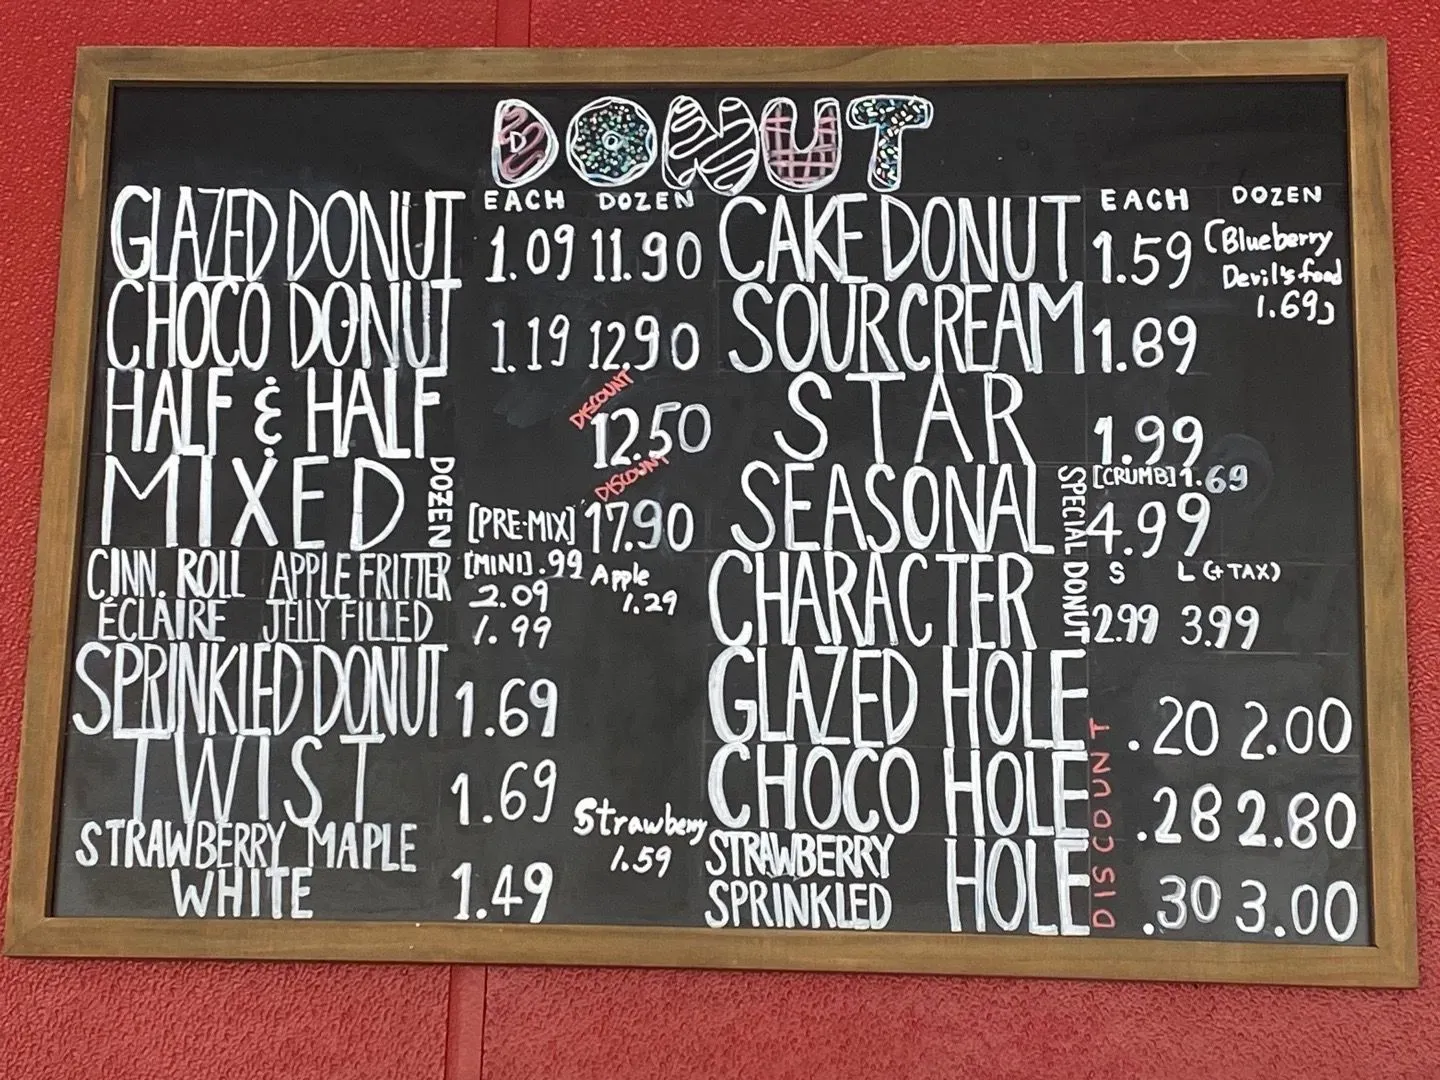 DONUT
EACH DOZEN
GLAZED DONUT 1.09 11.90
CHOCO DONUT 1.19 12.90
DISCOUNT
HALF & HALF 12.50
DISCOUNT
MIXED DOZEN [PRE-MIX] 17.90
CINN. ROLL APPLE FRITTER [MINI] .99 2.09 Apple 1.29
ÉCLAIRE JELLY FILLED 1.99
SPRINKLED DONUT 1.69
TWIST 1.69
STRAWBERRY MAPLE
WHITE 1.49
Strawberry
1.59
EACH DOZEN
CAKE DONUT 1.59 [Blueberry
Devil's food
1.69]
SOUR CREAM 1.89
STAR 1.99
[CRUMB] 1.69
SEASONAL 4.99
SPECIAL DONUT
S L (+TAX)
CHARACTER 2.99 3.99
GLAZED HOLE .20 2.00
CHOCO HOLE .28 2.80
STRAWBERRY
SPRINKLED HOLE .30 3.00
DISCOUNT